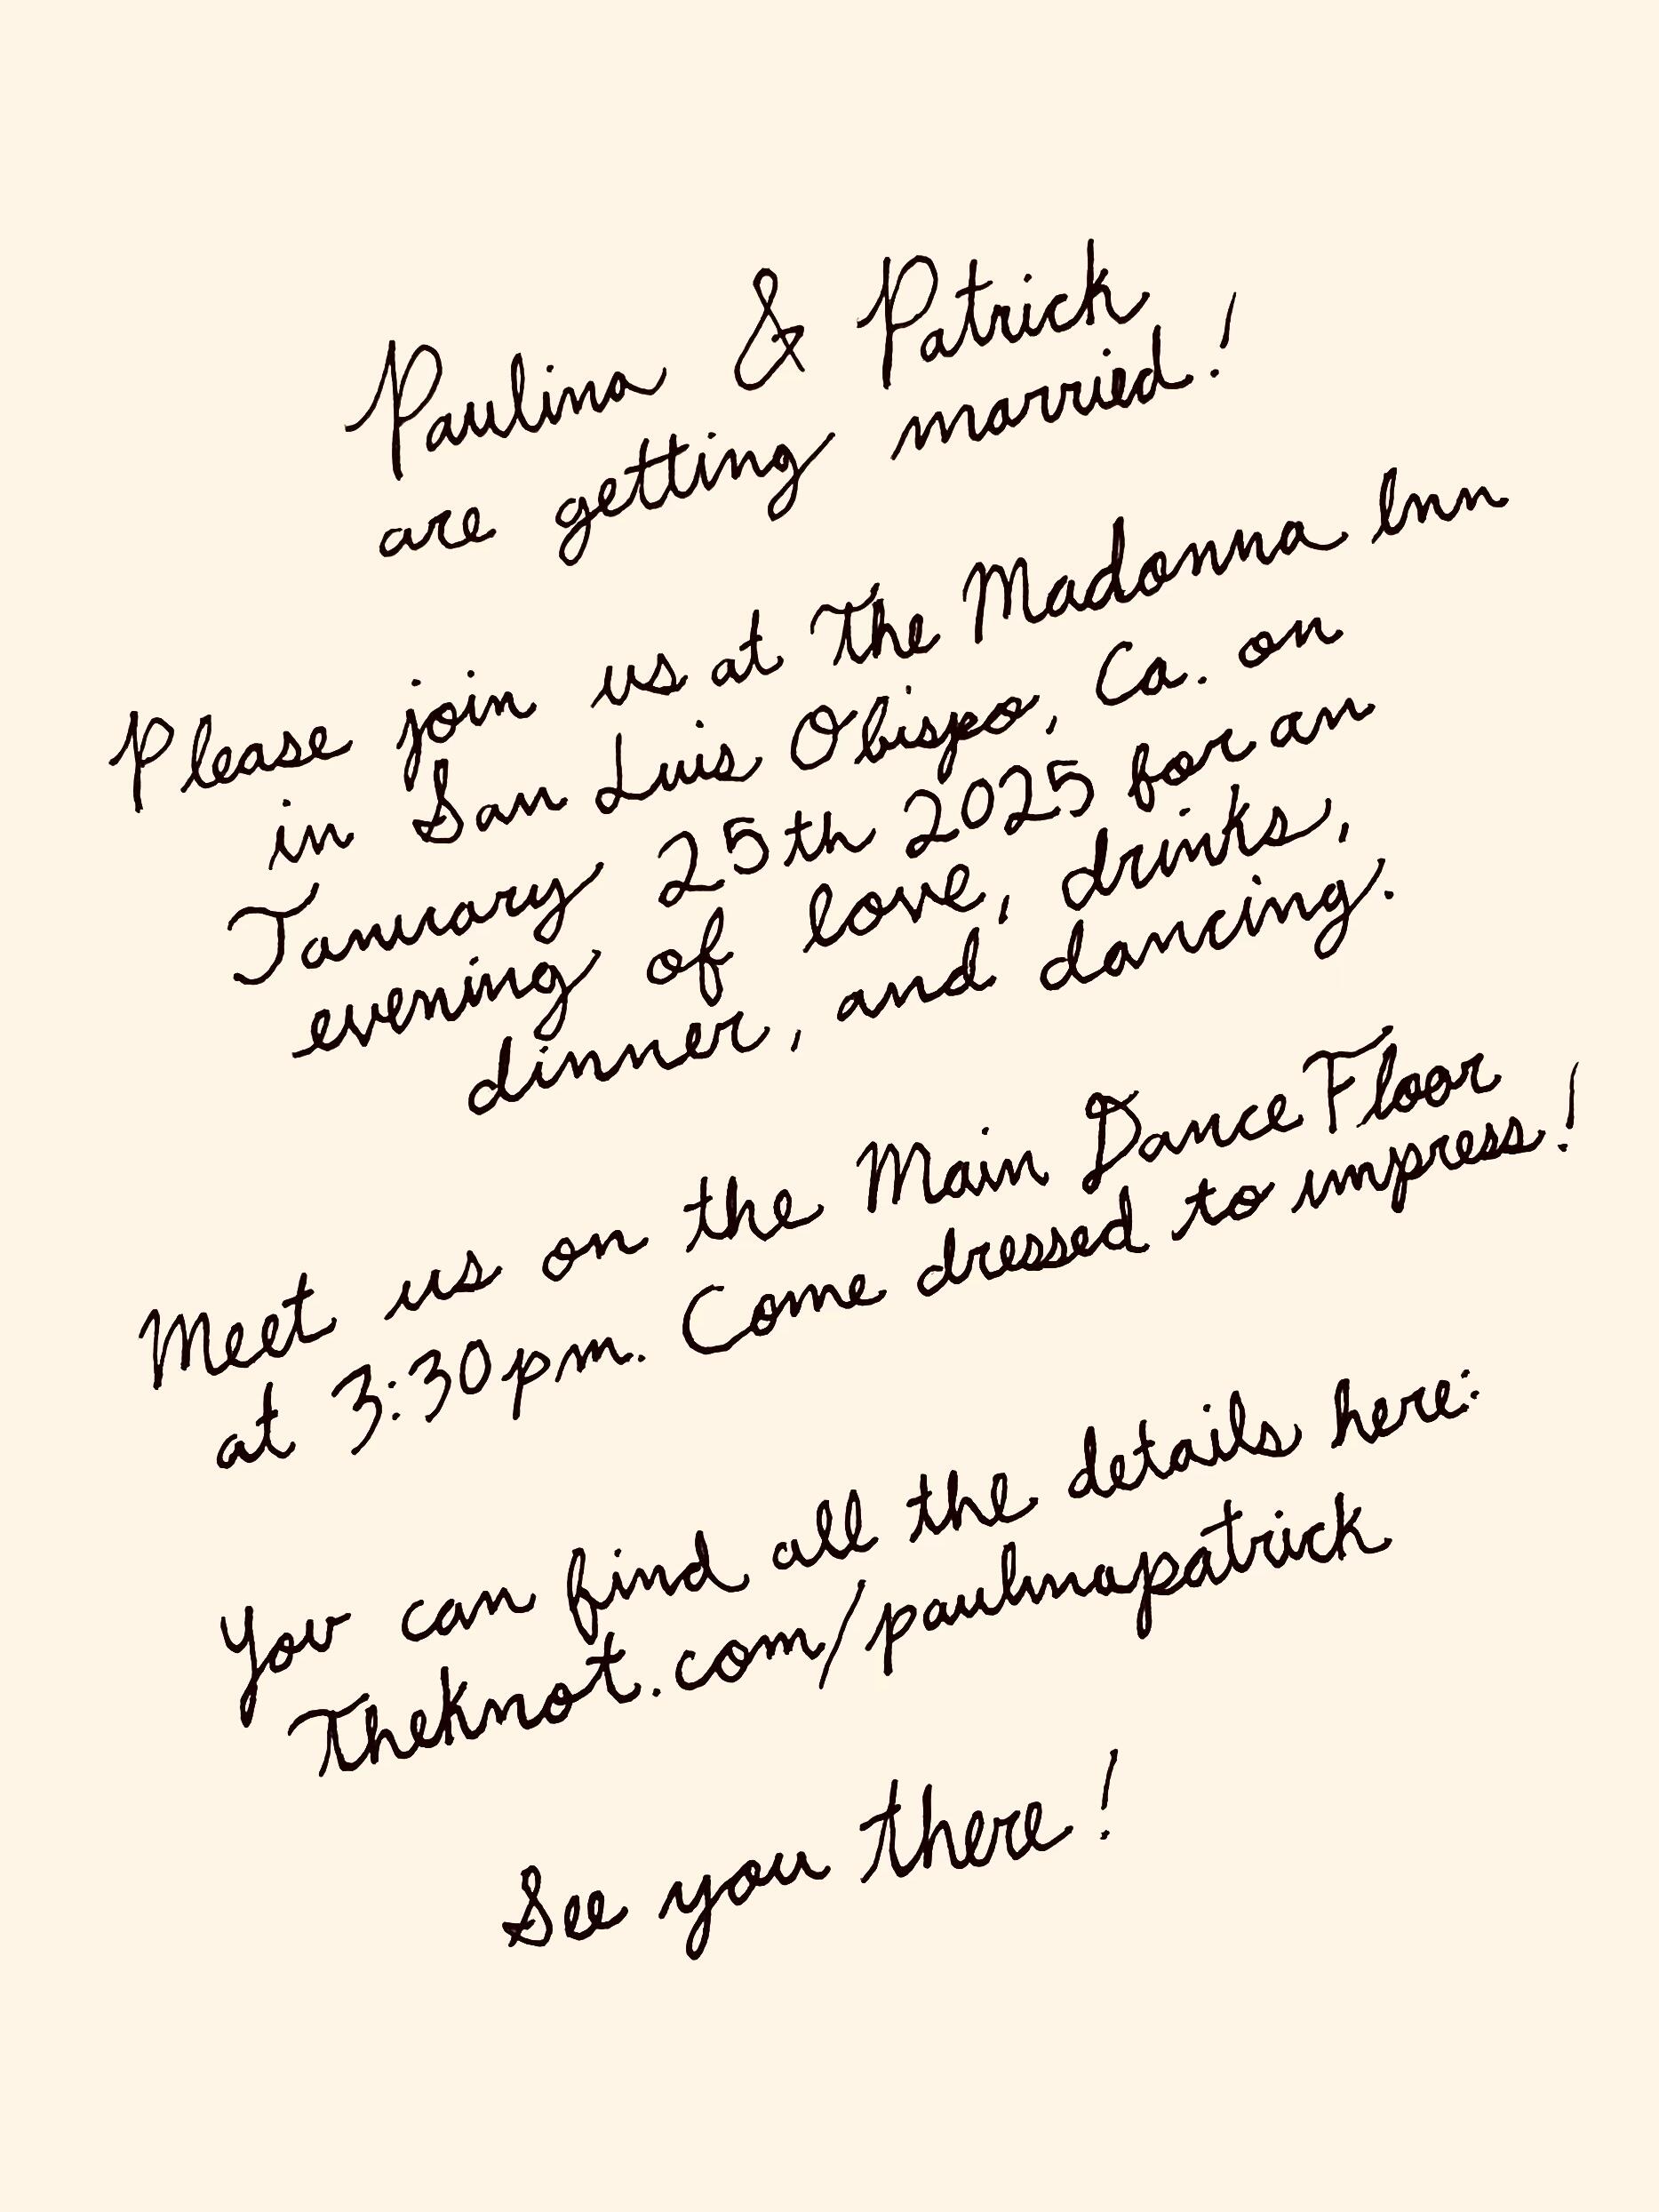 Paulina & Patrick
are getting married!
Please join us at The Madonna Inn
in San Luis Obispo, Ca. on
January 25th 2025 for an
evening of love, drinks,
dinner, and dancing.
Meet us on the Main Dance Floor
at 3:30pm. Come dressed to impress!
You can find all the details here:
Theknot.com/paulinapatrick
See you there!